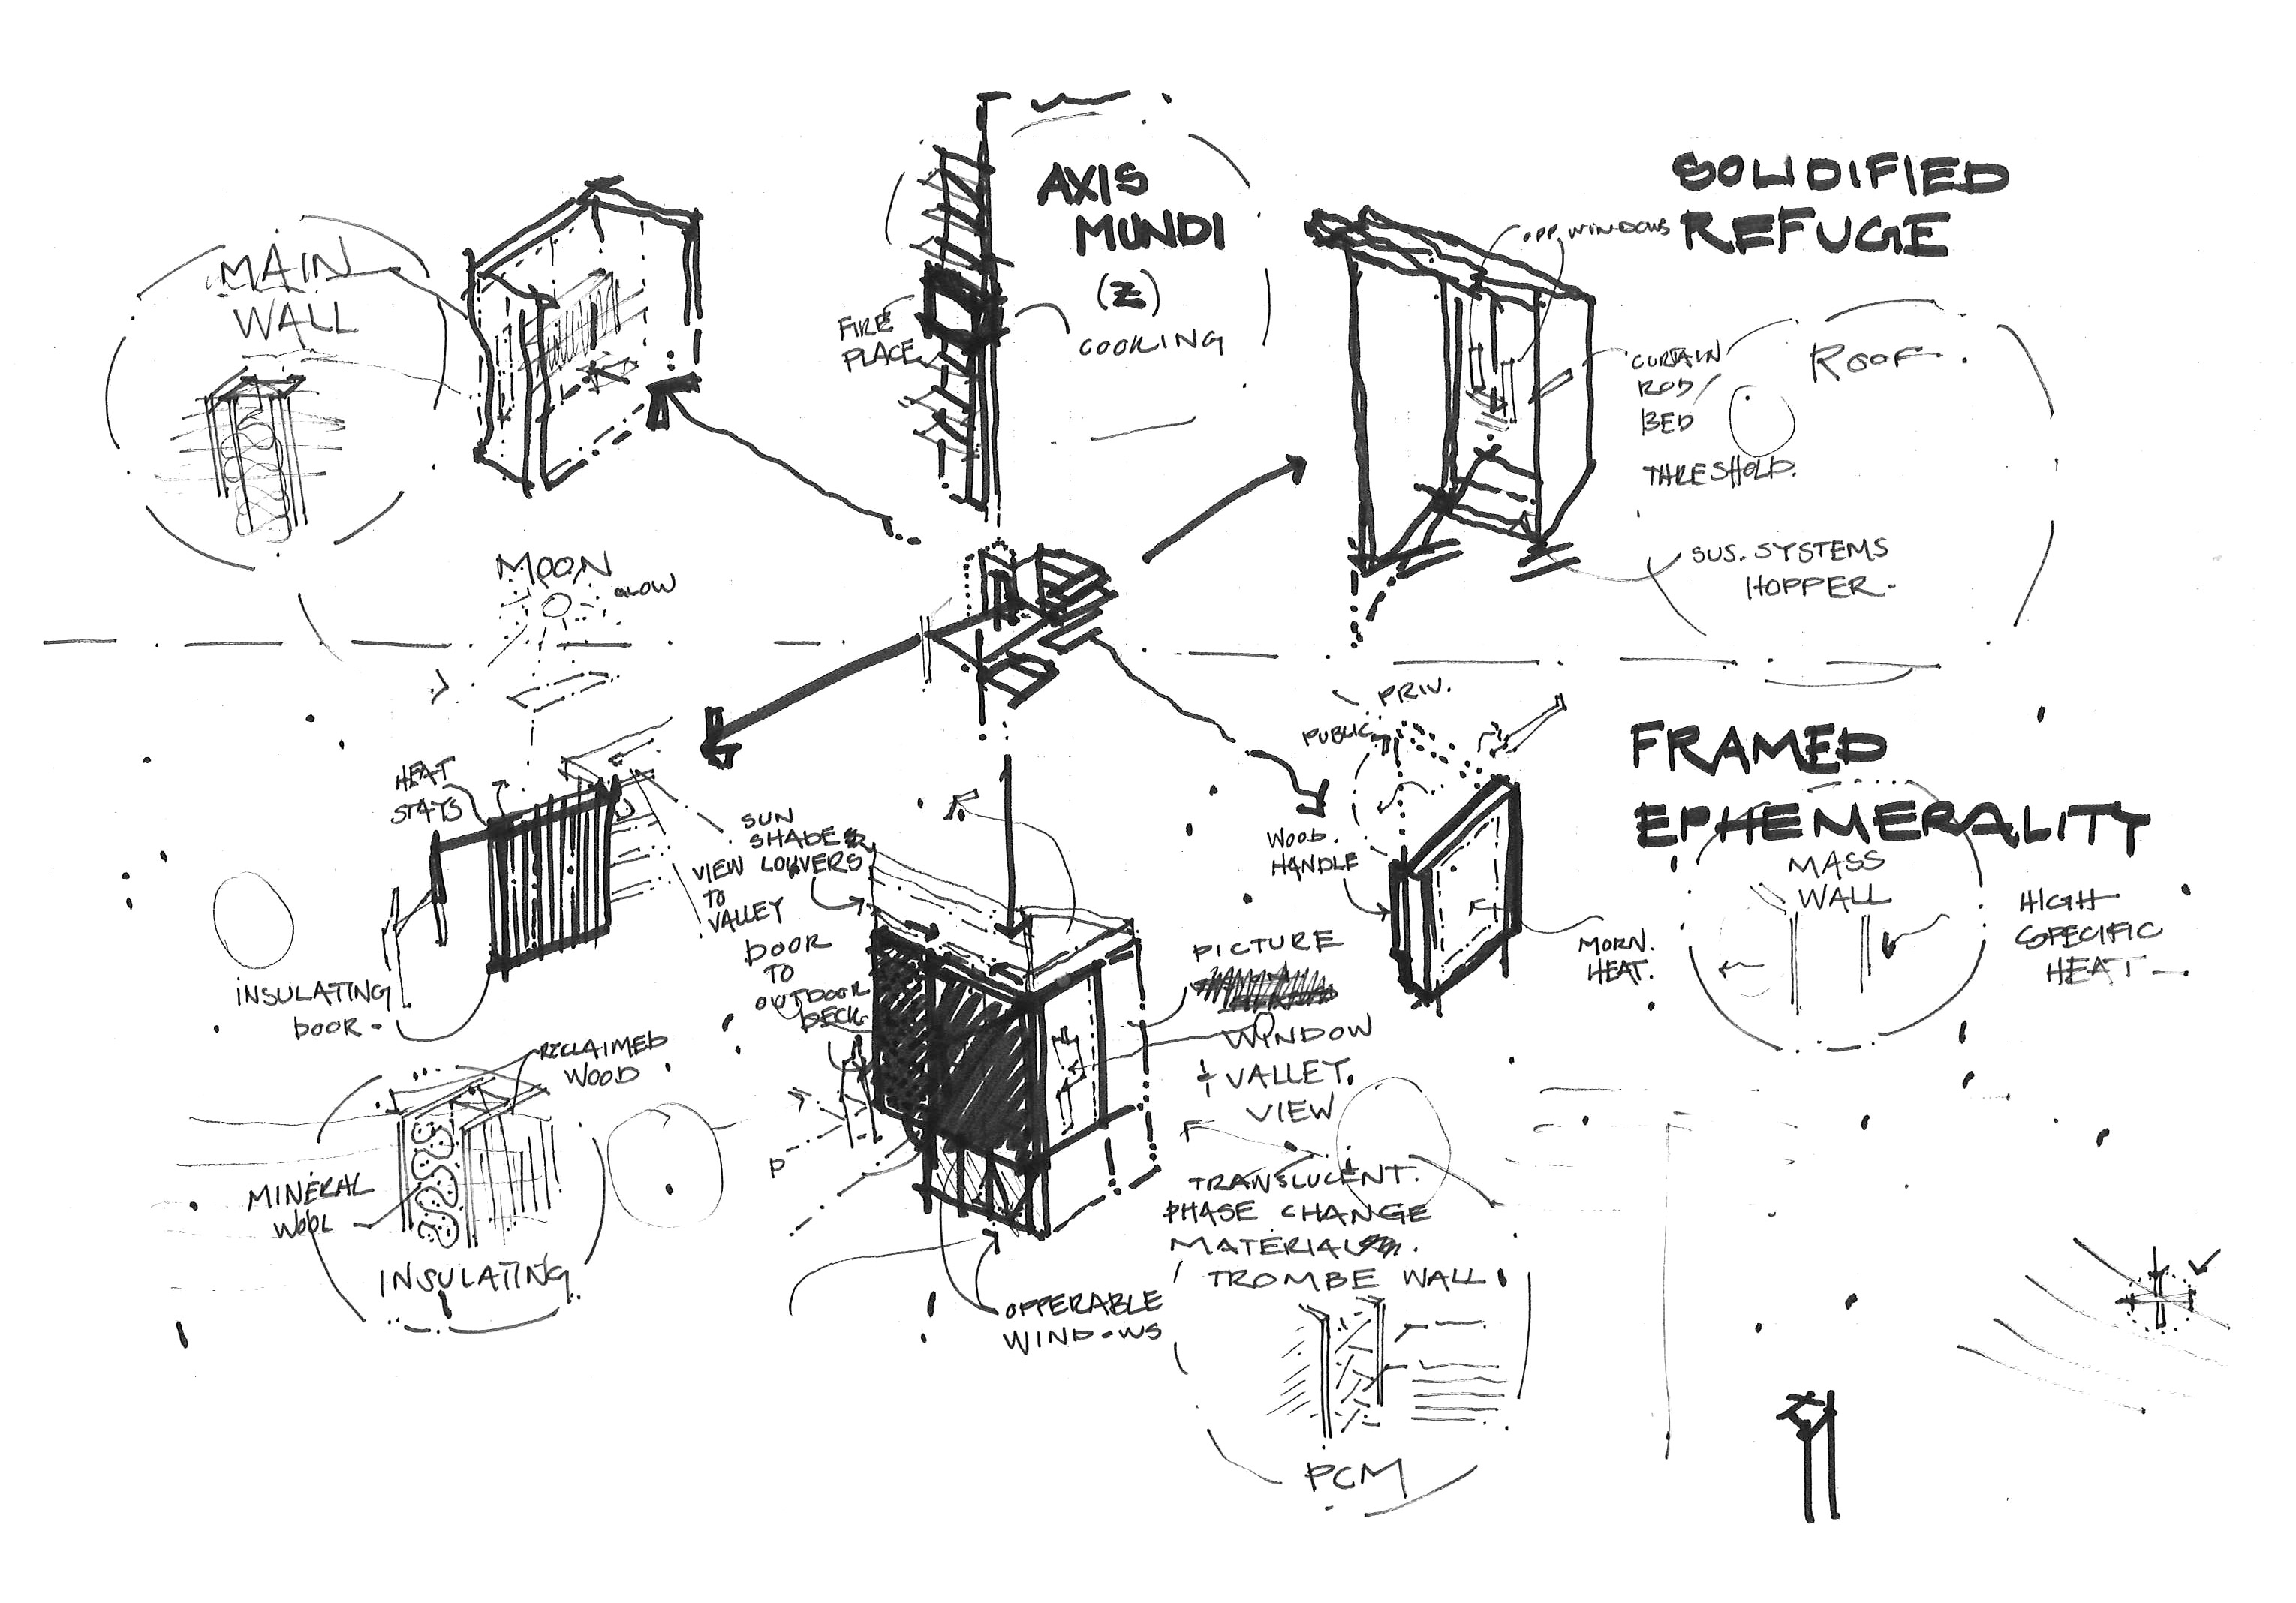 MAIN
WALL
AXIS
MUNDI
(Z)
COOKING
FIRE
PLACE
SOLIDIFIED
REFUGE
OPP. WINDOWS
CURTAIN
ROD/
BED
THRESHOLD.
ROOF.
SUS. SYSTEMS
HOPPER.
MOON
GLOW
HEAT
STAYS
INSULATING
DOOR.
SUN
SHADE
VIEW LOUVERS
TO
VALLEY
DOOR
TO
OUTDOOR
DECK.
PRIV.
PUBLIC
WOOD
HANDLE
MORN.
HEAT.
FRAMED
EPHEMERALITY
MASS
WALL
HIGH
SPECIFIC
HEAT
PICTURE
WINDOW
& VALLEY.
VIEW
RECLAIMED
WOOD
MINERAL
WOOL
INSULATING
P
OPPERABLE
WINDOWS
TRANSLUCENT.
PHASE CHANGE
MATERIAL
TROMBE WALL
PCM